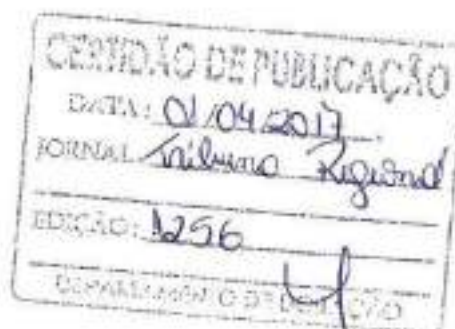 CERTIDÃO DE PUBLICAÇÃO
DATA: 01/04/2017
JORNAL Tribuna Regional
EDIÇÃO: 1256
DEPARTAMENTO DE